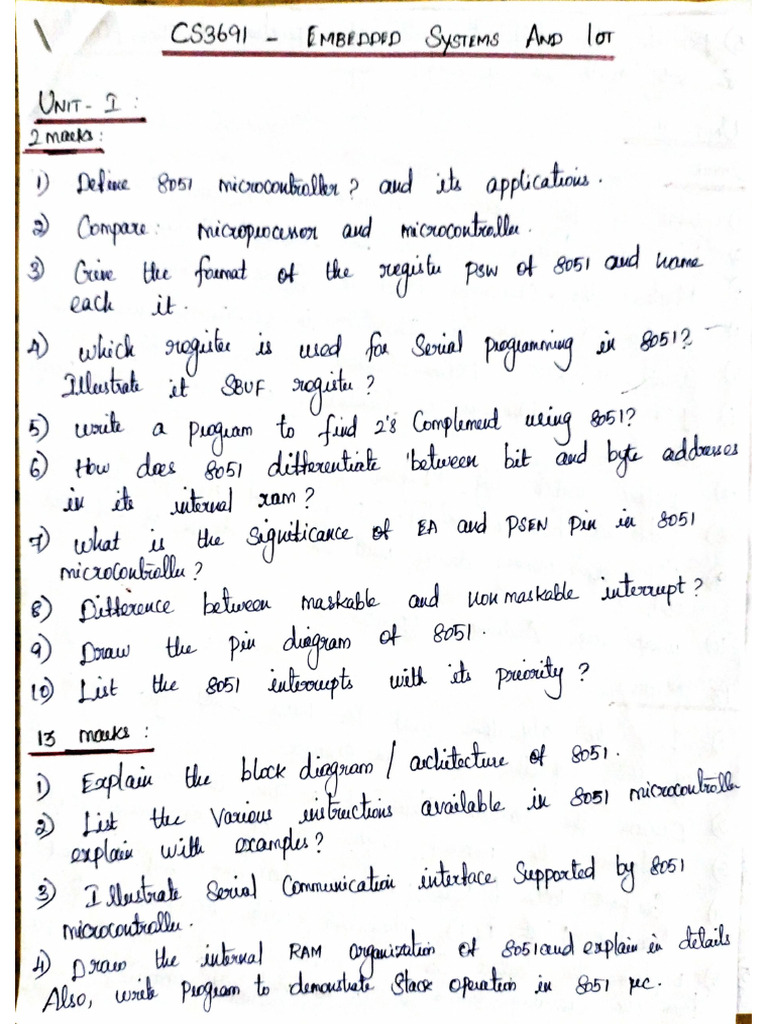 CS3691 - EMBEDDED SYSTEMS AND IOT
UNIT - I :
2 marks :
1) Define 8051 microcontroller? and its applications.
2) Compare: microprocessor and microcontroller.
3) Give the format of the register PSW of 8051 and name
each it.
4) which register is used for Serial programming in 8051?
Illustrate it SBUF register?
5) write a program to find 2's Complement using 8051?
6) How does 8051 differentiate between bit and byte addresses
in its internal ram?
7) what is the significance of EA and PSEN pin in 8051
microcontroller?
8) Difference between maskable and non maskable interrupt?
9) Draw the pin diagram of 8051.
10) List the 8051 interrupts with its priority?
13 marks :
1) Explain the block diagram / architecture of 8051.
2) List the various instructions available in 8051 microcontroller
explain with examples?
3) Illustrate Serial Communication interface Supported by 8051
microcontroller.
4) Draw the internal RAM organization of 8051 and explain in details
Also, write program to demonstrate Stack operation in 8051 µc.